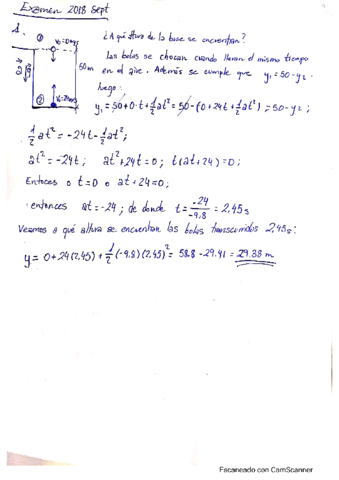 Examen 2018 Sept
1.
① v₀=0m/s
50m
② v₀=24m/s
¿A qué altura de la base se encuentran?
Las bolas se chocan cuando llevan el mismo tiempo
en el aire. Además se cumple que y₁=50-y₂.
luego:
y₁=50+0·t+½at²=50-(0+24t+½at²)=50-y₂;
½at²=-24t-½at²;
at²=-24t; at²+24t=0; t(at+24)=0;
Entonces o t=0 o at+24=0;
entonces at=-24; de donde t=-24/-9.8=2,45s
Veamos a qué altura se encuentran las bolas transcurridos 2,45s:
y=0+24(2,45)+½(-9.8)(2,45)²=58.8-29.41=29.38 m
Escaneado con CamScanner